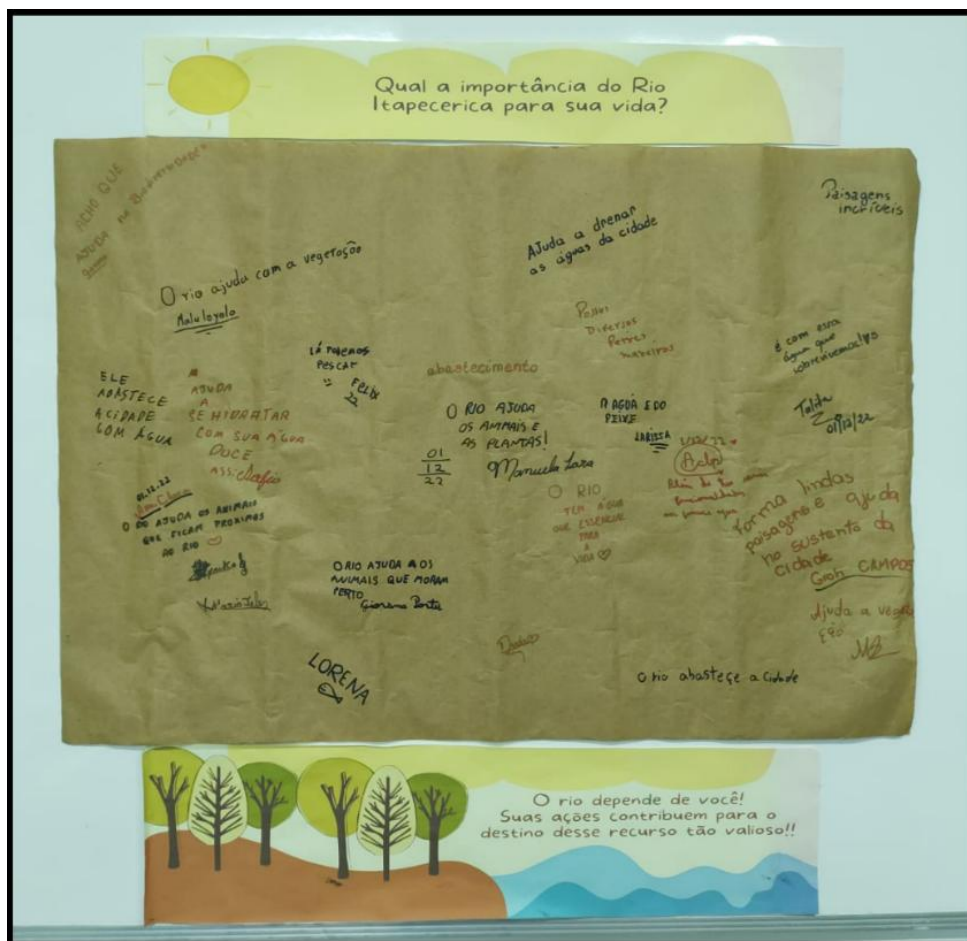 Qual a importância do Rio
Itapecerica para sua vida?
ACHO QUE
AJUDA na
Paisagens
incríveis
Ajuda a drenar
as águas da cidade
O rio ajuda com a vegetação
Malu loyola
Possui
Diversos
Peixes
é com essa
água que
sobrevivemos!
LÁ PODEMOS
PESCAR
FELIX
22
abastecimento
ELE
ABASTECE
A CIDADE
COM ÁGUA
AJUDA
A
SE HIDRATAR
COM SUA ÁGUA
DOCE
ASS:
O RIO AJUDA
OS ANIMAIS E
AS PLANTAS!
01
12
22
Manuela Lara
A AGUA E DO
PEIXE
LARISSA
Talita
01/12/22
1/12/22
01.12.22
Ana Clara
O AJUDA OS ANIMAIS
QUE FICAM PROXIMOS
AO RIO
O RIO
TEM ÁGUA
QUE ESSENCIAL
PARA
A
VIDA
Forma lindas
paisagens e ajuda
no sustento da
cidade
CAMPOS
O RIO AJUDA AOS
ANIMAIS QUE MORAM
PERTO
Giovana
Ajuda a
LORENA
O rio abasteçe a cidade
O rio depende de você!
Suas ações contribuem para o
destino desse recurso tão valioso!!